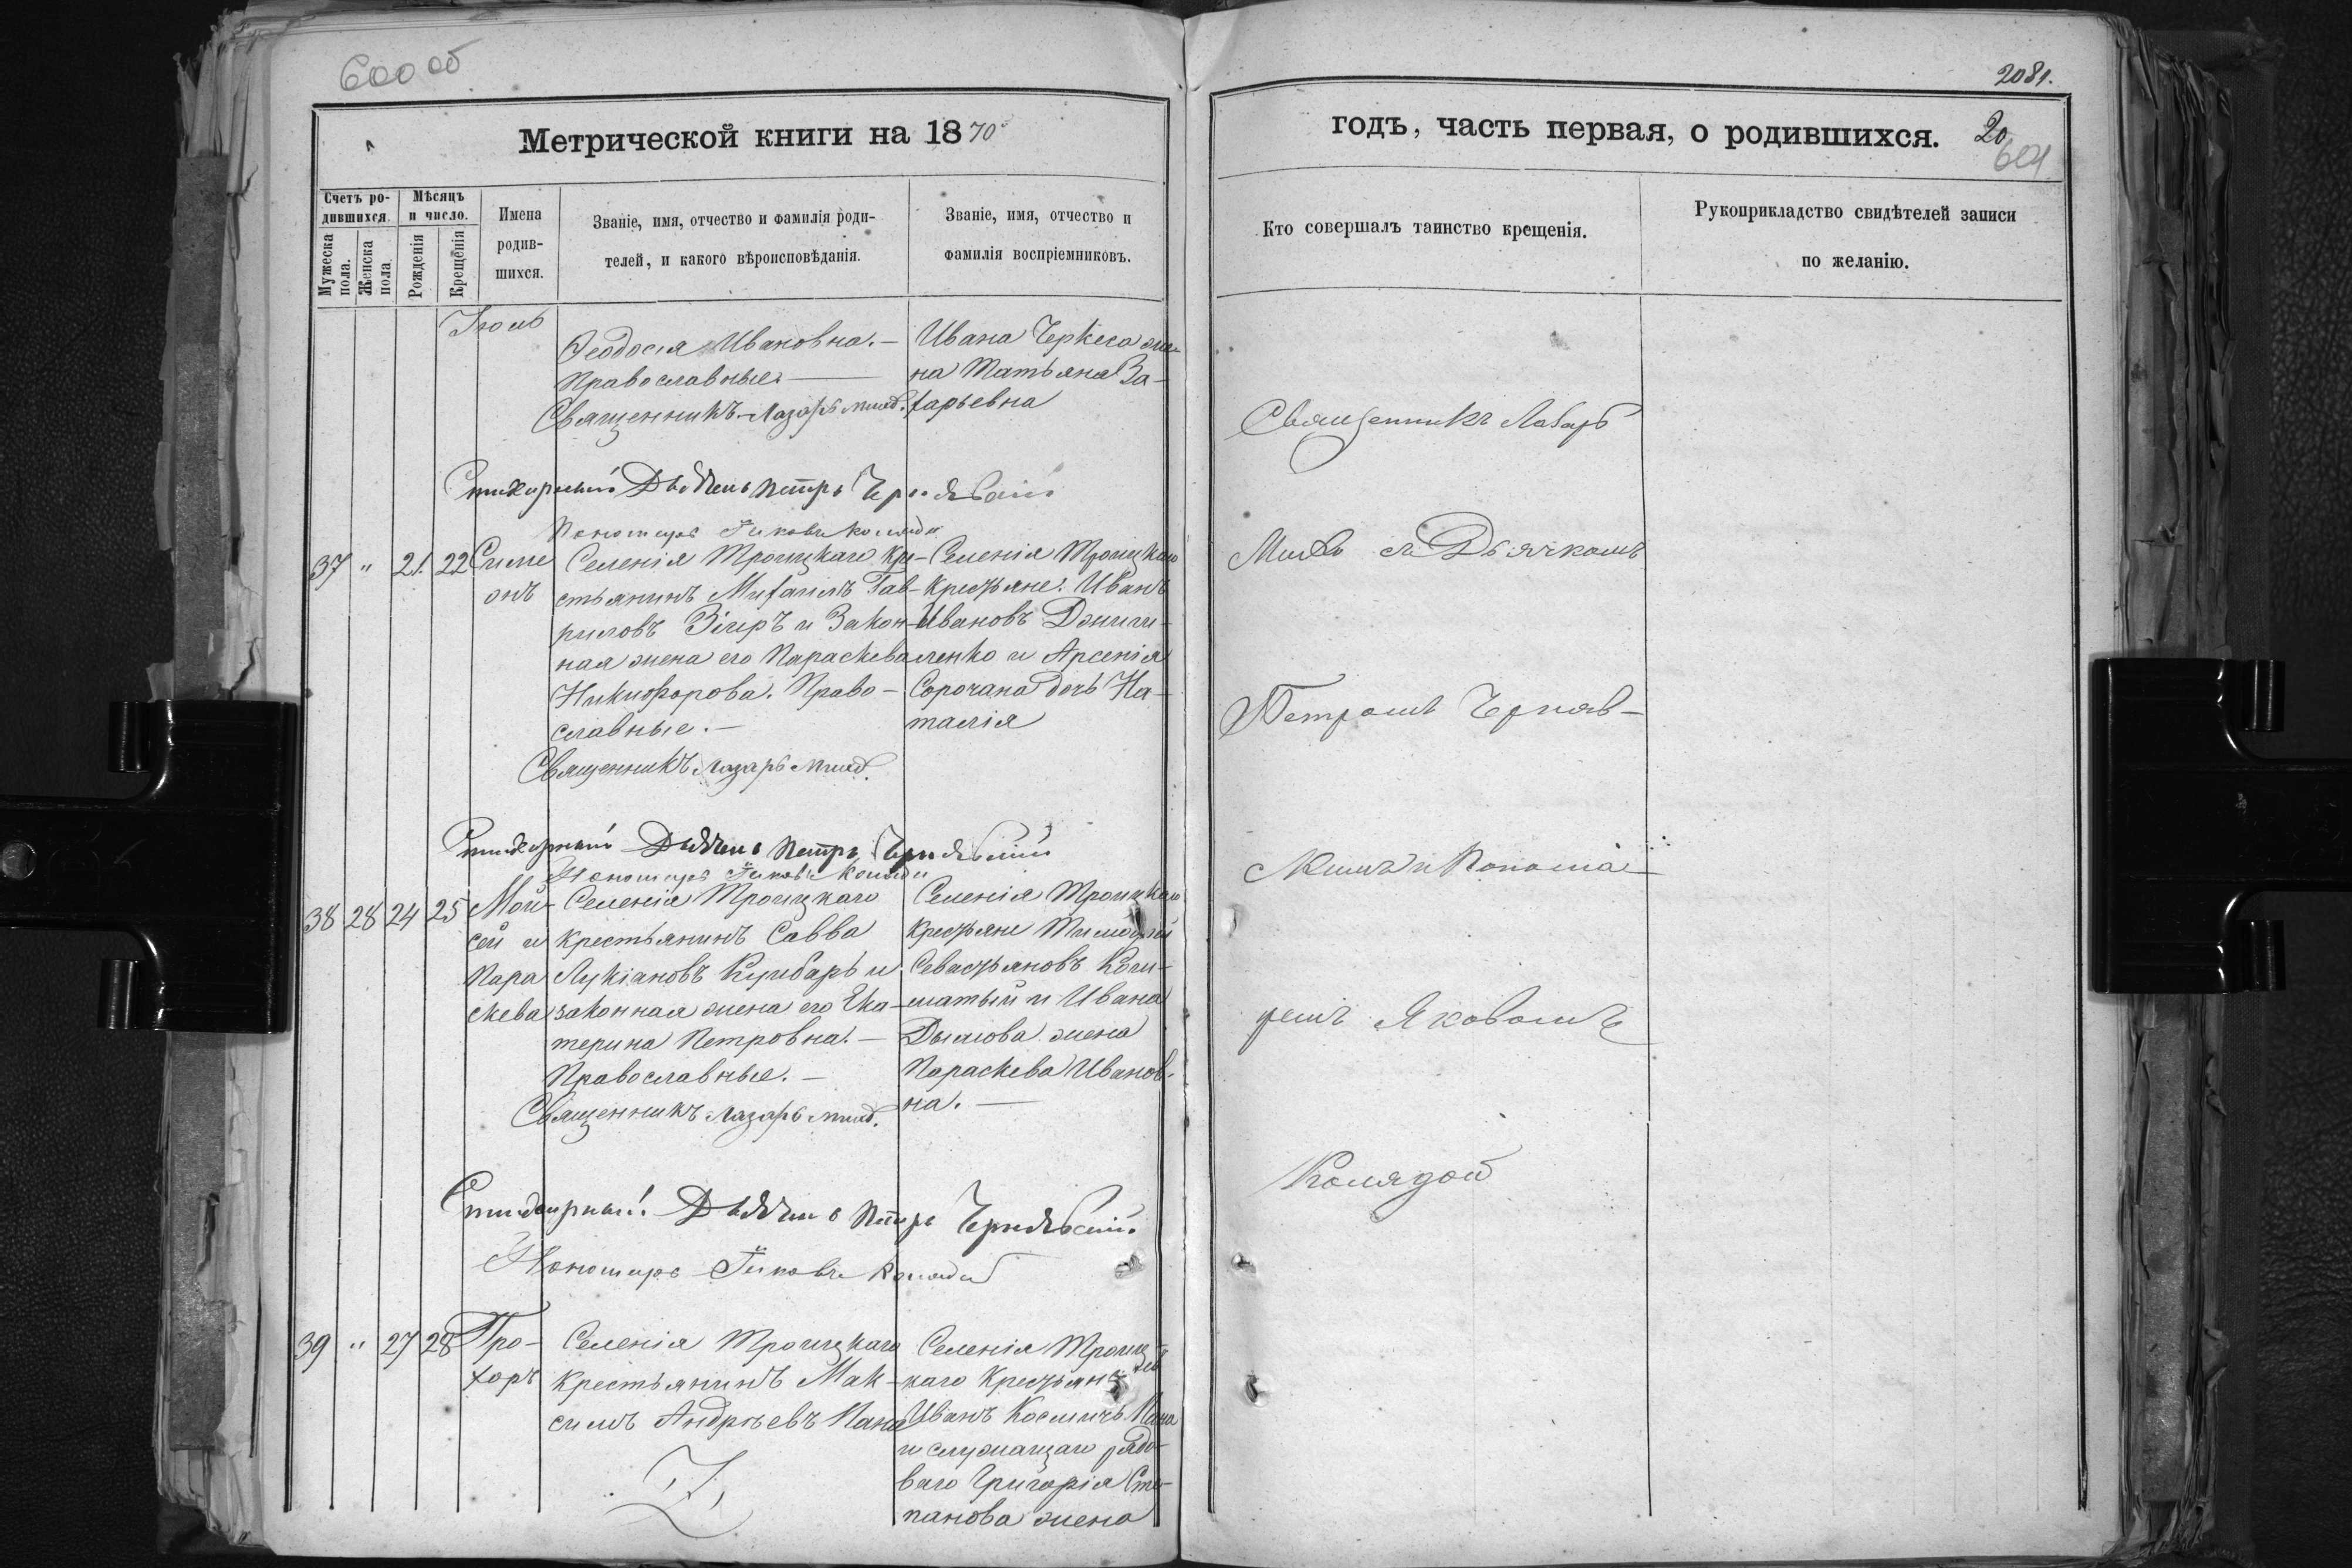 600 об
2081.
Метрической книги на 1870
годъ, часть первая, о родившихся.
20
601
Счетъ ро-
дившихся.
Мужеска пола.
Женска пола.
Мѣсяцъ
и число.
Рожденія
Крещенія
Имена
родив-
шихся.
Званіе, имя, отчество и фамилія роди-
телей, и какого вѣроисповѣданія.
Званіе, имя, отчество и
фамилія воспріемниковъ.
Кто совершалъ таинство крещенія.
Рукоприкладство свидѣтелей записи
по желанію.
Іюль
Ѳеодосія Ивановна. —
Православные. —
Священникъ Лазарь
Ивана Черкеса же-
на Татьяна За-
харьевна
Стихарный Дьячекъ Петръ Чернявскій
Пономарь Іяковъ Коляда
37 " 21. 22 Симе
онъ
Селенія Троицкаго кре-
стьянинъ Михаилъ Гав-
риловъ Зіперъ и Закон-
ная жена его Параскева
Никифорова. Право-
славные. —
Священникъ Лазарь
Селенія Троицкаго
Крестьяне: Иванъ
Ивановъ Джими-
ленко и Арсенія
Сорочана дочь На-
талія
Стихарный Дьячекъ Петръ Чернявскій
Пономарь Іяковъ Коляда
38 28 24 25 Мой-
сей и
Пара
скева
Селенія Троицкаго
крестьянинъ Савва
Лукіановъ Кушбаръ и
законная жена его Ека-
терина Петровна. —
Православные. —
Священникъ Лазарь
Селенія Троицкаго
крестьяне Тимофей
Севастьяновъ
и Ивана
Дымова жена
Параскева Иванов-
на. —
Стихарный Дьячекъ Петръ Чернявскій
Пономарь Іяковъ Коляда
39 " 27 28 Про-
хоръ
Селенія Троицкаго
крестьянинъ Мак-
симъ Андреевъ Пана
Селенія Троиц-
каго Крестьяне
Иванъ Космичъ Пана
и служащаго рядо-
ваго Григорія Сте-
панова жена
Священникъ Лазарь
съ Дьячкомъ
Петромъ Черняв-
и Понома-
ремъ Яковомъ
Колядой